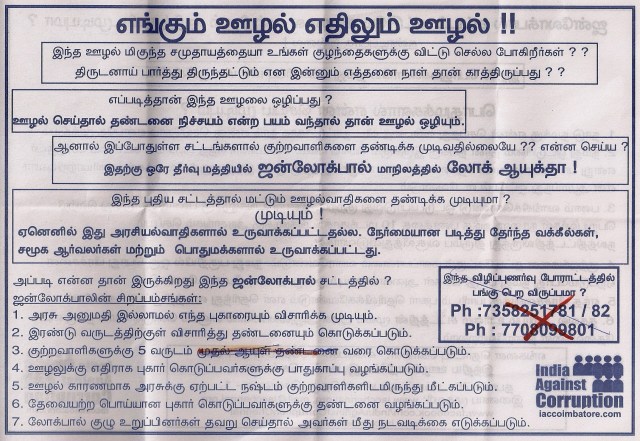 எங்கும் ஊழல் எதிலும் ஊழல் !!
இந்த ஊழல் மிகுந்த சமுதாயத்தையா உங்கள் குழந்தைகளுக்கு விட்டு செல்ல போகிறீர்கள் ? ?
திருடனாய் பார்த்து திருந்தட்டும் என இன்னும் எத்தனை நாள் தான் காத்திருப்பது ? ?
எப்படித்தான் இந்த ஊழலை ஒழிப்பது ?
ஊழல் செய்தால் தண்டனை நிச்சயம் என்ற பயம் வந்தால் தான் ஊழல் ஒழியும்.
ஆனால் இப்போதுள்ள சட்டங்களால் குற்றவாளிகளை தண்டிக்க முடிவதில்லையே ?? என்ன செய்ய ?
இதற்கு ஒரே தீர்வு மத்தியில் ஜன்லோக்பால் மாநிலத்தில் லோக் ஆயுக்தா !
இந்த புதிய சட்டத்தால் மட்டும் ஊழல்வாதிகளை தண்டிக்க முடியுமா ?
முடியும் !
ஏனெனில் இது அரசியல்வாதிகளால் உருவாக்கப்பட்டதல்ல. நேர்மையான படித்து தேர்ந்த வக்கீல்கள்,
சமூக ஆர்வலர்கள் மற்றும் பொதுமக்களால் உருவாக்கப்பட்டது.
அப்படி என்ன தான் இருக்கிறது இந்த ஜன்லோக்பால் சட்டத்தில் ?
ஜன்லோக்பாலின் சிறப்பம்சங்கள்:
1. அரசு அனுமதி இல்லாமல் எந்த புகாரையும் விசாரிக்க முடியும்.
2. இரண்டு வருடத்திற்குள் விசாரித்து தண்டனையும் கொடுக்கப்படும்.
3. குற்றவாளிகளுக்கு 5 வருடம் முதல் ஆயுள் தண்டனை வரை கொடுக்கப்படும்.
4. ஊழலுக்கு எதிராக புகார் கொடுப்பவர்களுக்கு பாதுகாப்பு வழங்கப்படும்.
5. ஊழல் காரணமாக அரசுக்கு ஏற்பட்ட நஷ்டம் குற்றவாளிகளிடமிருந்து மீட்கப்படும்.
6. தேவையற்ற பொய்யான புகார் கொடுப்பவர்களுக்கு தண்டனை வழங்கப்படும்.
7. லோக்பால் குழு உறுப்பினர்கள் தவறு செய்தால் அவர்கள் மீது நடவடிக்கை எடுக்கப்படும்.
இந்த விழிப்புணர்வு போராட்டத்தில்
பங்கு பெற விருப்பமா ?
Ph :7358251781 / 82
Ph : 7708099801
India
Against
Corruption
iaccoimbatore.com